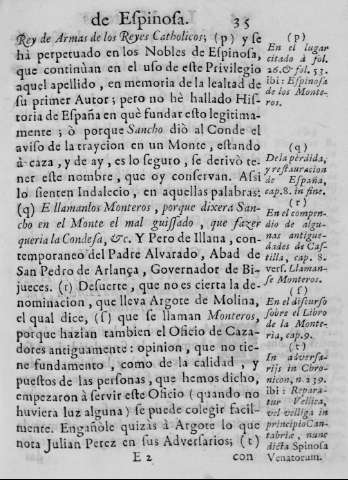 de Espinosa. 35
Rey de Armas de los Reyes Catholicos; (p) y se
hà perpetuado en los Nobles de Espinosa,
que continùan en el uso de este Privilegio
aquel apellido, en memoria de la lealtad de
su primer Autor; pero no hè hallado His-
toria de España en què fundar esto legitima-
mente; ò porque Sancho diò al Conde el
aviso de la trayecion en un Monte, estando
à caza, y de ay, es lo seguro, se derivò te-
ner este nombre, que oy conservan. Assi
lo sienten Indalecio, en aquellas palabras:
(q) E llamanlos Monteros, porque dixera San-
cho en el Monte el mal guissado, que fazer
queria la Condesa, &c. Y Pero de Illana, con-
temporaneo del Padre Alvarado, Abad de
San Pedro de Arlança, Governador de Bi-
jueces. (r) Desuerte, que no es cierta la de-
nominacion, que lleva Argote de Molina,
el qual dice, (s) que se llaman Monteros,
porque hazian tambien el Oficio de Caza-
dores antiguamente: opinion, que no tie-
ne fundamento, como de la calidad, y
puestos de las personas, que hemos dicho,
empezaron à servir este Oficio (quando no
huviera luz alguna) se puede colegir facil-
mente. Engañòle quizàs à Argote lo que
nota Julian Perez en sus Adversarios; (t)
E 2 con
(p)
En el lugar
citado à fol.
26. & fol. 53.
ibi: Espinosa
de los Monte-
ros.
(q)
De la pèrdida,
y restauracion
de España,
cap. 8. in fine.
(r)
En el compen-
dio de algu-
nas antigue-
dades de Cas-
tilla, cap. 8.
vers. Llaman-
se Monteros.
(s)
En el discurso
sobre el Libro
de la Monte-
ria, cap. 9.
(t)
In adversa-
rijs in Chro-
nicon, n. 239.
ibi: Repara-
tur Vellica,
vel velliga in
principio Can-
tabriæ, nunc
dicta Spinosa
Venatorum.